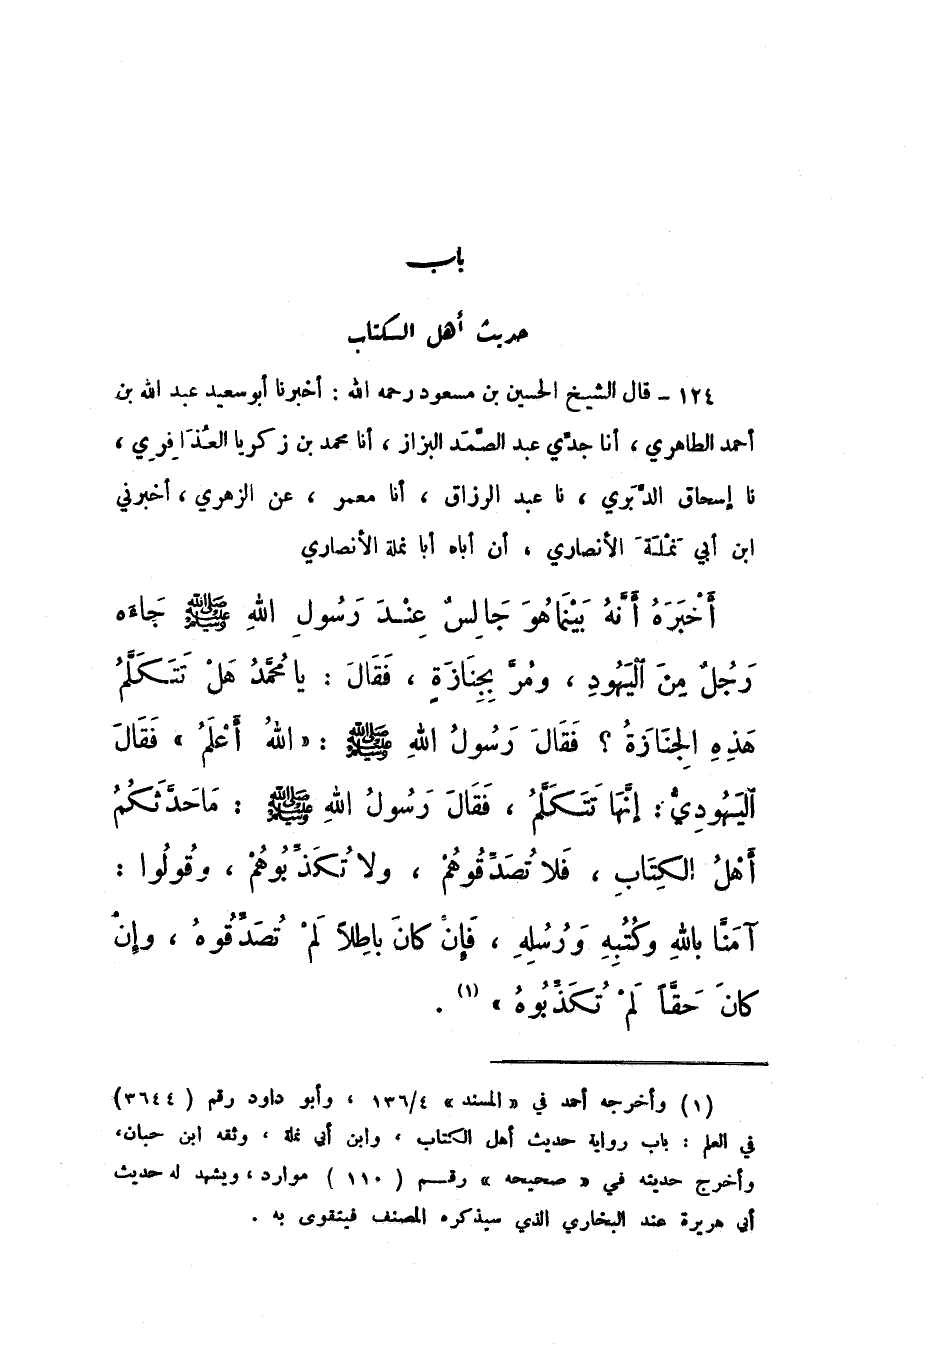 باب
حديث أهل الكتاب
١٢٤ – قال الشيخ الحسين بن مسعود رحمه الله : أخبرنا أبو سعيد عبد الله بن
أحمد الطاهري ، أنا جدّي عبد الصَّمَد البزاز ، أنا محمد بن زكريا العُذَافِري ،
نا إسحاق الدَّبَري ، نا عبد الرزاق ، أنا معمر ، عن الزهري ، أخبرني
ابن أبي نَمْلَةَ الأنصاري ، أن أباه أبا نملة الأنصاري
أَخْبَرَهُ أَنَّهُ بَيْنَمَا هُوَ جَالِسٌ عِنْدَ رَسُولِ اللهِ ﷺ جَاءَه
رَجُلٌ مِنَ ٱلْيَهُودِ ، ومُرَّ بِجِنَازَةٍ ، فَقَالَ : يا مُحَمَّدُ هَلْ تَتَكَلَّمُ
هَذِهِ الِجنَازَةُ ؟ فَقَالَ رَسُولُ اللهِ ﷺ : « اللهُ أَعْلَمُ » فَقَالَ
ٱلْيَهُودِيُّ : إِنَّهَا تَتَكَلَّمُ ، فَقَالَ رَسُولُ اللهِ ﷺ : مَا حَدَّثَكُمُ
أَهْلُ الكِتَابِ ، فَلا تُصَدِّقُوهُمْ ، ولا تُكَذِّبُوهُمْ ، وقُولُوا :
آمَنَّا باللهِ وكُتُبِهِ وَرُسُلِهِ ، فَإِنْ كانَ باطِلاً لَمْ تُصَدِّقُوهُ ، وإِنْ
كانَ حَقَّاً لَمْ تُكَذِّبُوهُ » (١) .
(١) وأخرجه أحمد في « المسند » ١٣٦/٤ ، وأبو داود رقم ( ٣٦٤٤ )
في العلم : باب رواية حديث أهل الكتاب ، وابن أبي نملة ، وثقه ابن حبان،
وأخرج حديثه في « صحيحه » رقم ( ١١٠ ) موارد ، ويشهد له حديث
أبي هريرة عند البخاري الذي سيذكره المصنف فيتقوى به .